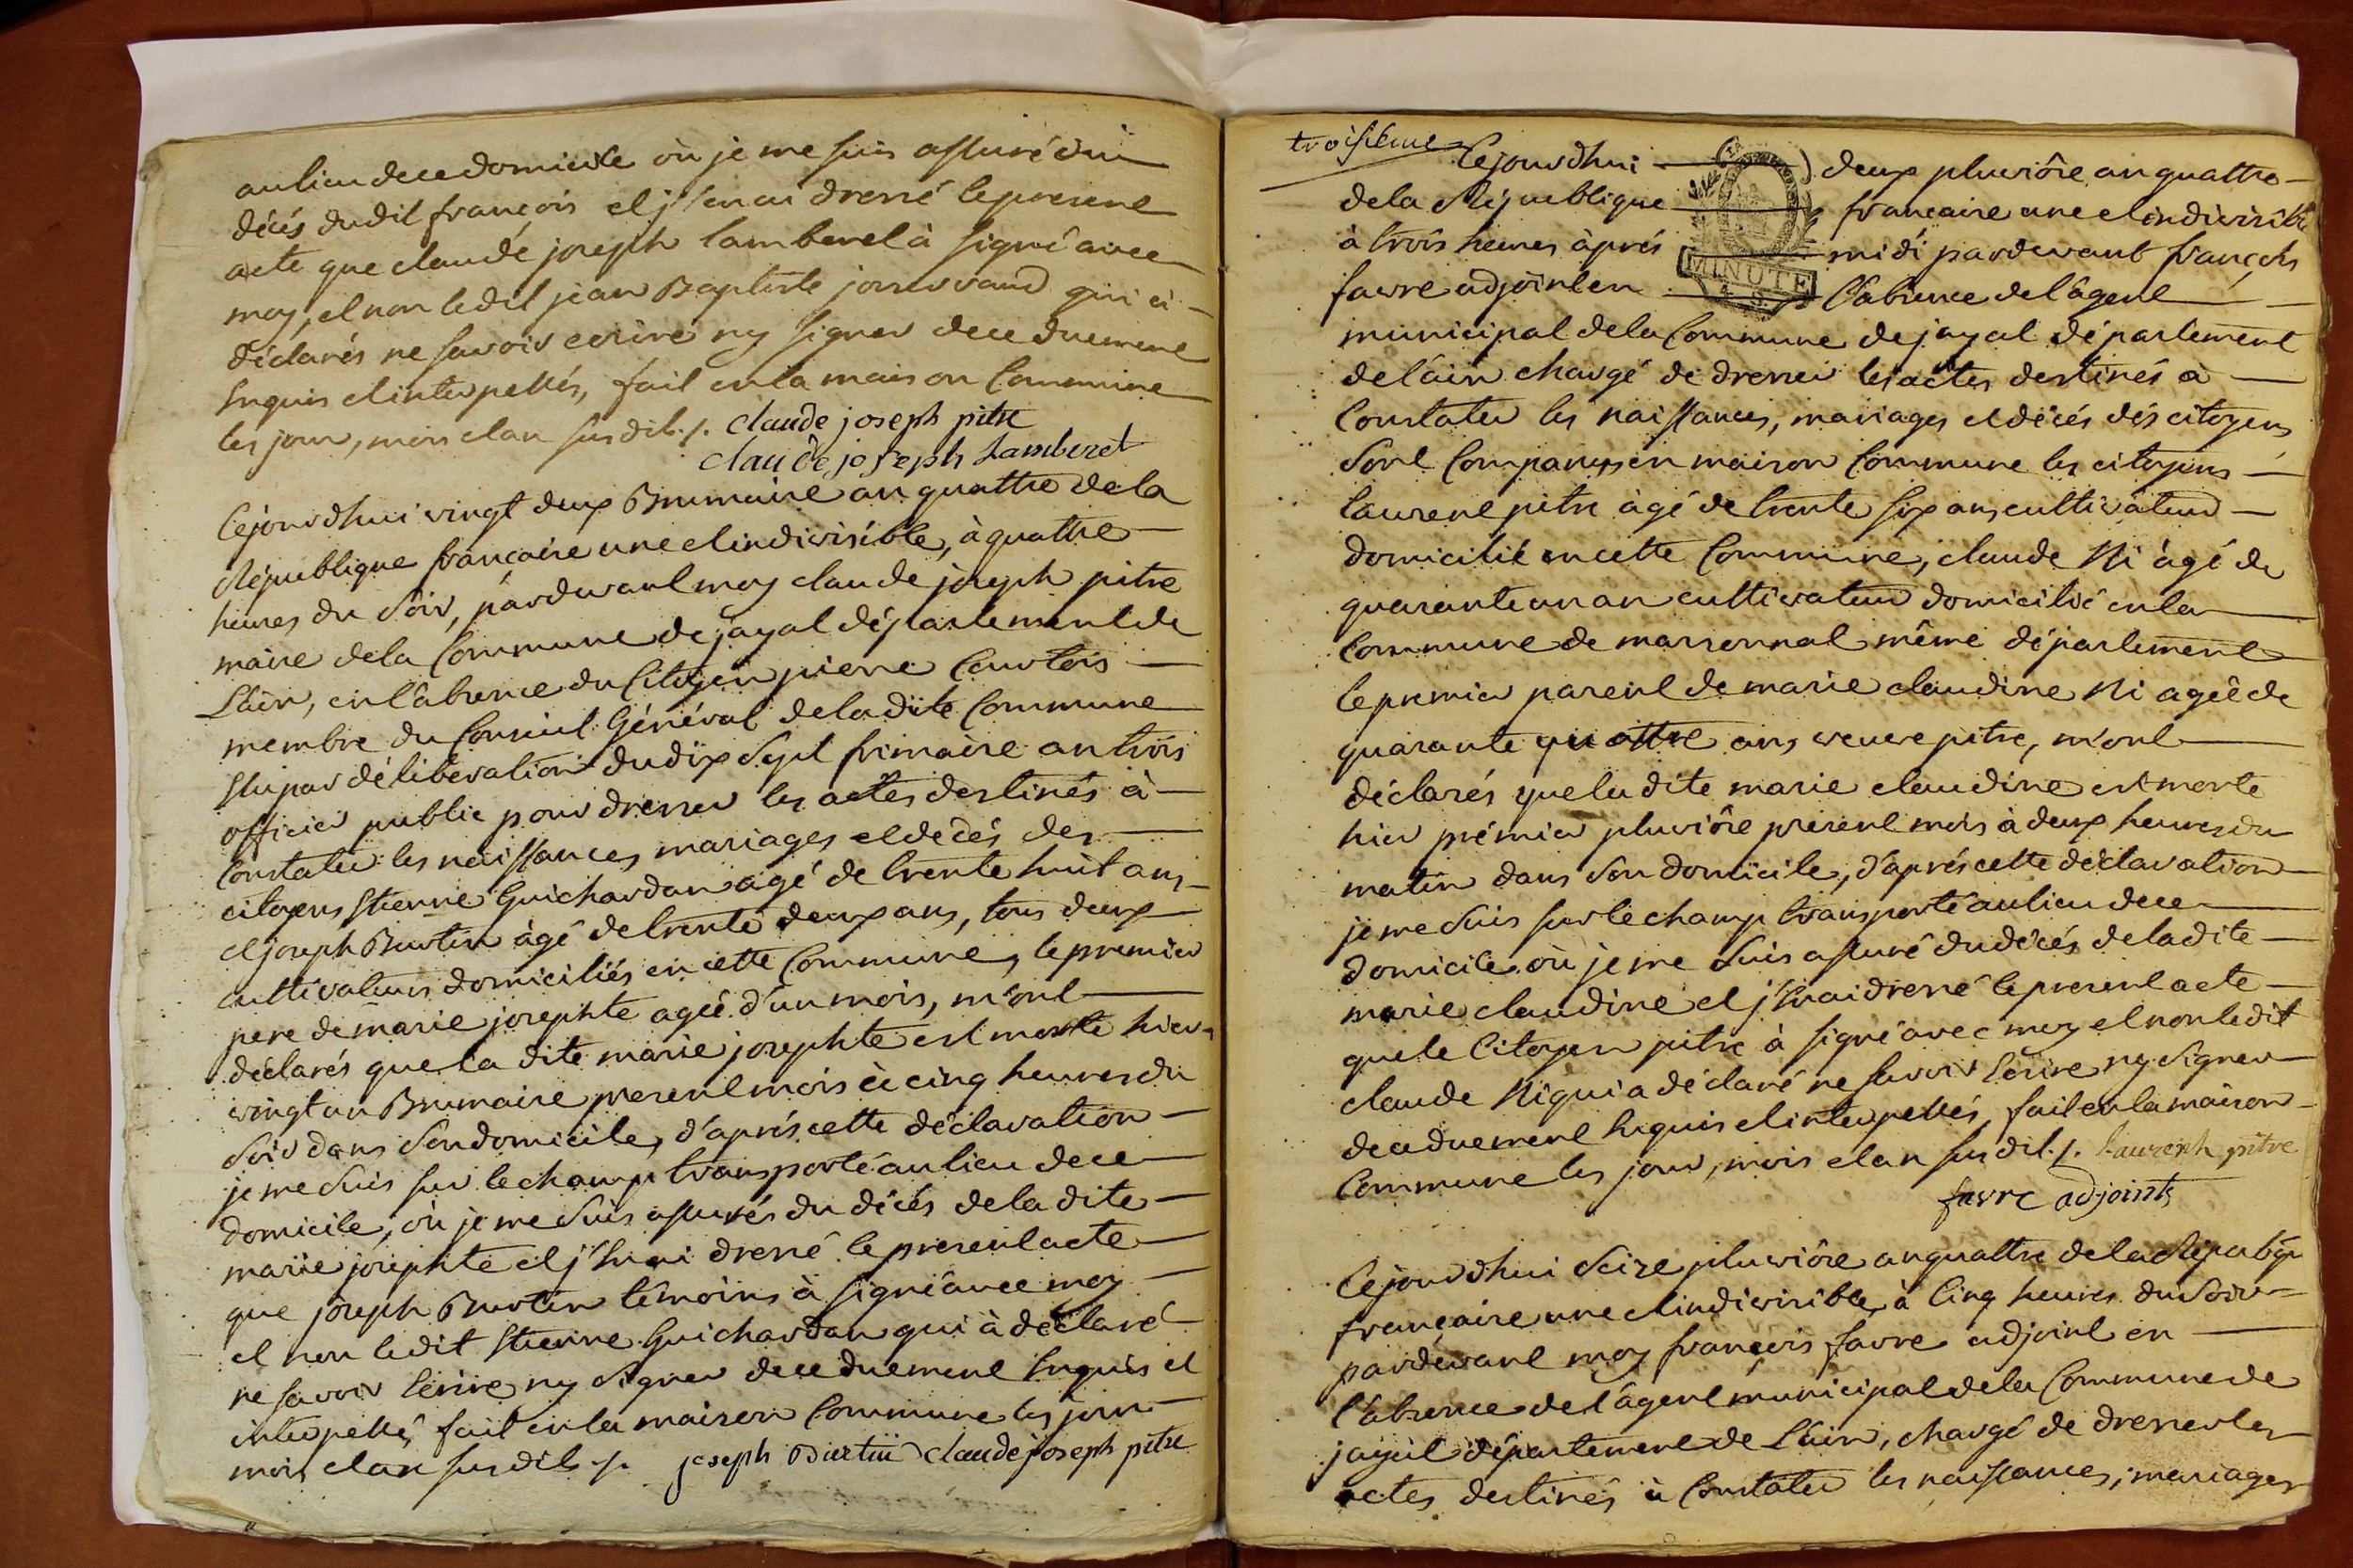 au lieu de ce domicile où je me suis assuré du
décés dudit françois et j'en ai dressé le present
acte que claude joseph lamberel à signé avec
moy, et non ledit jean Baptiste jousserand qui à
déclarés ne savoir ecrire ny signer de ce duement
enquis et interpellés, fait en la maison Commune
les jour, mois et an susdit ./. Claude joseph pitre
claude joseph Lamberet
Cejourdhui vingt deux Brumaire an quattre de la
République francaise une et indivisible, à quattre
heures du Soir, pardevant moy claude joseph pitre
maire de la Commune de jayat département de
L'ain, en l'absence du Citoyen pierre Courtois
membre du Conseil Général de ladite Commune
Elu par délibération du dix Sept frimaire an trois
officier public pour dresser les actes destinés à
Constater les naissances mariages et décés des
citoyens Etienne Guichardan agé de trente huit ans
et joseph Burtin àgé de trente deux ans, tous deux
cultivateurs domiciliés en cette Commune, le premier
pere de marie josephte agée d'un mois, m'ont
déclarés que la dite marie josephte est morte hier
vingt un Brumaire present mois à cinq heures du
Soir dans Son domicile, d'aprés cette déclaration
je me Suis sur le champ transporté au lieu de ce
domicile, où je me Suis assurés du décés de la dite
marie josephte et j'en ai dressé le present acte
que joseph Burtin témoins à signé avec moy
et non ledit Etienne Guichardan qui à déclaré
ne savoir Ecrire ny Signer de ce duement Enquis et
interpellé, fait en la maison Commune les jour
mois et an susdit ./. joseph Burtin Claude joseph pitre
troisieme
Cejourdhui deux pluviôse an quattre
de la République francaise une et indivisible
à trois heures àprés midi pardevant françois
MINUTE
favre adjoint en l'absence de l'àgent
municipal de la Commune de jayat département
de l'ain chargé de dresser les actes destinés à
Constater les naissances, mariages et décés des citoyens
Sont Comparus en maison Commune les citoyens
laurent pitre àgé de trente six ans cultivateur
domicilié en cette Commune, claude Ni àgé de
quarante un an cultivateur domicilié en la
Commune de marsonnal même département
le premier parent de marie claudine Ni agée de
quarante quattre ans, veuve pitre, m'ont
déclarés que la dite marie claudine est morte
hier prémier pluviôse present mois à deux heures du
matin dans Son domicile, d'aprés cette déclaration
je me Suis sur le champ transporté au lieu de ce
domicile où je me Suis assuré du décés de la dite
marie claudine et j'en ai dressé le present acte
que le Citoyen pitre à signé avec moy et non ledit
claude Ni qui a déclaré ne savoir Ecrire ny Signer
de ce duement Enquis et interpellés, fait en la maison
Commune les jour, mois et an susdit ./. laurent pitre
favre adjoints
Cejourdhui Seize pluviôse an quattre de la Républiq
française une et indivisible, à Cinq heures du Soir
pardevant moy françois favre adjoint en
l'absence de l'àgent municipal de la Commune de
jayat département de L'ain, chargé de dresser les
actes destinés à Constater les naissances, mariages